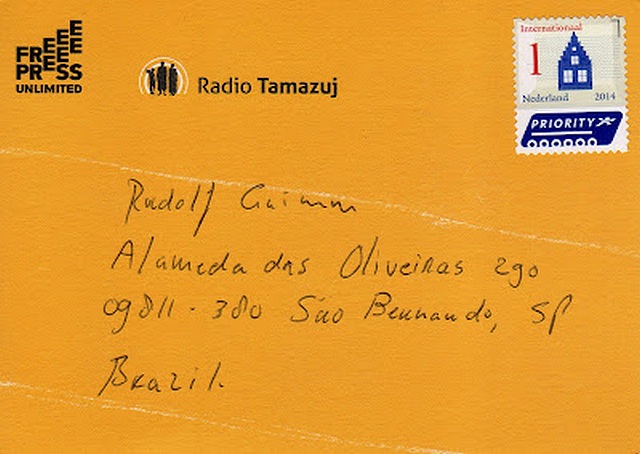 FREEEEE
PRESS
UNLIMITED
Radio Tamazuj
Internationaal
1
Nederland 2014
PRIORITY
Rudolf Grimm
Alameda das Oliveiras 290
09811-380 São Bernardo, SP
Brazil.